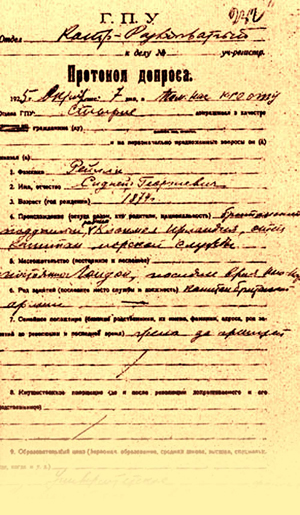 Г. П. У
Отдел Контр-Разведыват
к делу № уч-регистр.
Протокол допроса.
1925. Октяб. 7 дня, я
Отдела ГПУ: Стырне допрашивал в качестве
гражданина (ку)
и на первоначально предложенные вопросы он (а)
1. Фамилия Рейлли
2. Имя, отчество Сидней Георгиевич
3. Возраст (год рождения) 1874 г.
4. Происхождение (откуда родом, кто родители, национальность) британский
подданный, Клонмел Ирландия, отец
капитан морской службы
5. Местожительство (постоянное и последнее)
постоянное Лондон, последнее время
6. Род занятий (последнее место службы и должность) капитан британской
армии
7. Семейное положение (близкие родственники, их имена, фамилии, адреса, род занятий до революции и последнее время) жена
8. Имущественное положение (до и после революции допрашиваемого и его
родственников)
9. Образовательный ценз (первонач. образование, средняя школа, высшая, специальн.
где, когда и т. д.)
Университетское